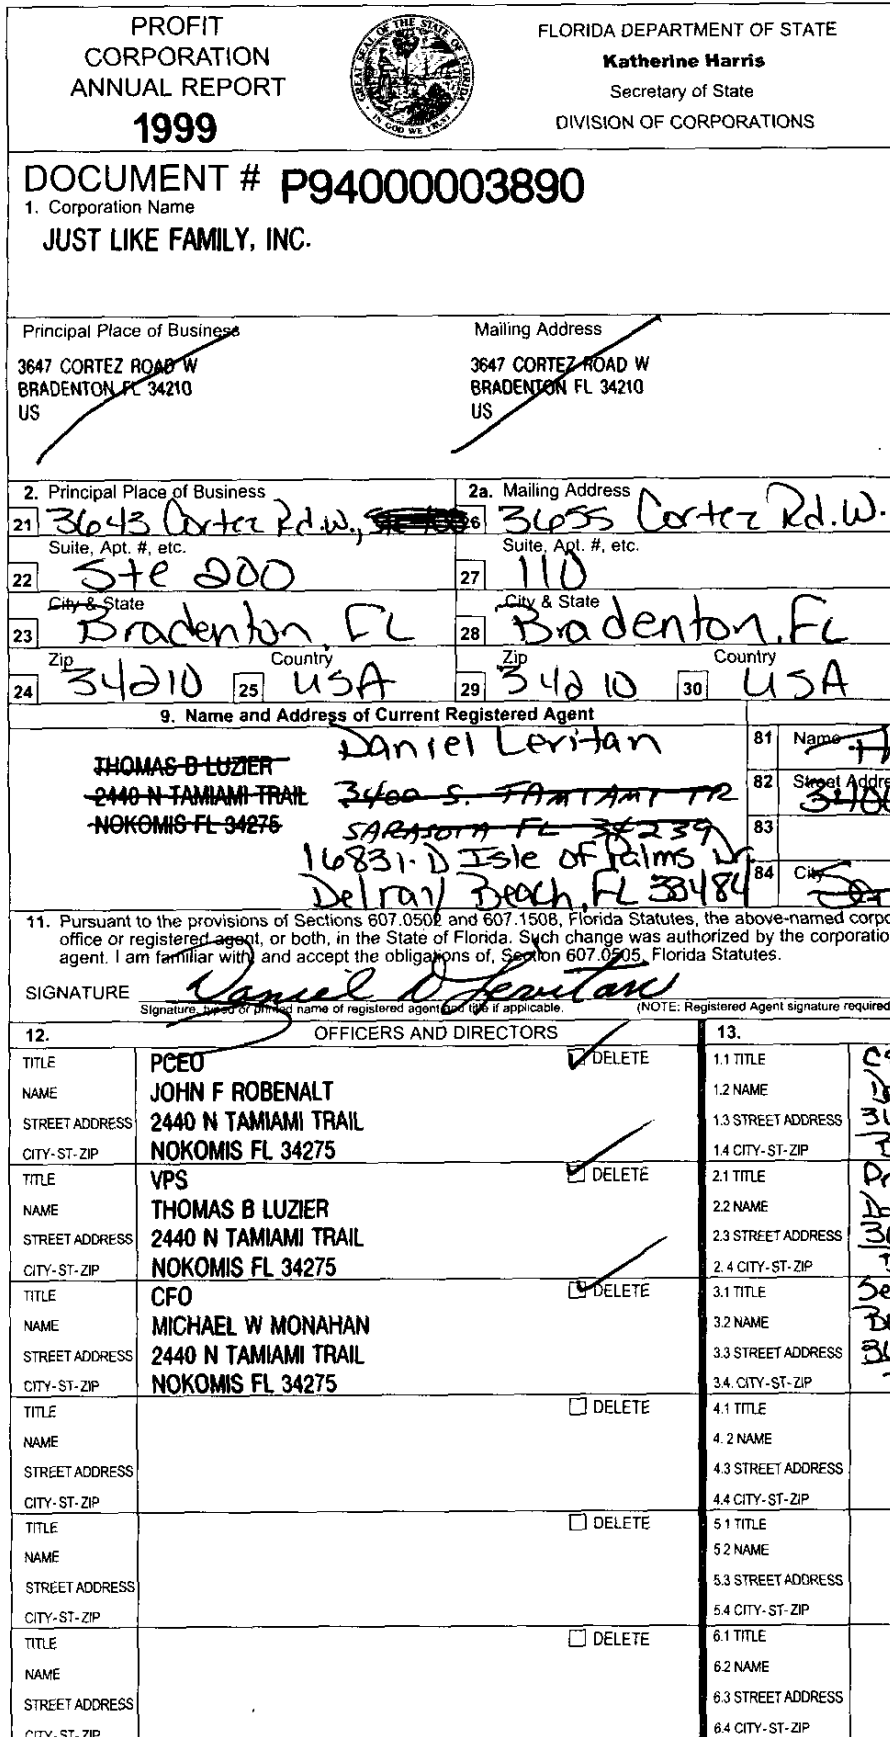 PROFIT
CORPORATION
ANNUAL REPORT
1999
GREAT SEAL OF THE STATE OF FLORIDA
IN GOD WE TRUST
FLORIDA DEPARTMENT OF STATE
Katherine Harris
Secretary of State
DIVISION OF CORPORATIONS
DOCUMENT # P94000003890
1. Corporation Name
JUST LIKE FAMILY, INC.
Principal Place of Business
3647 CORTEZ ROAD W
BRADENTON FL 34210
US
Mailing Address
3647 CORTEZ ROAD W
BRADENTON FL 34210
US
2. Principal Place of Business
21 3643 Cortez Rd.W.,
Suite, Apt. #, etc.
22 Ste 200
City & State
23 Bradenton, FL
Zip Country
24 34210 25 USA
2a. Mailing Address
26 3655 Cortez Rd.W.
Suite, Apt. #, etc.
27 110
City & State
28 Bradenton, FL
Zip Country
29 34210 30 USA
9. Name and Address of Current Registered Agent
THOMAS B LUZIER
2440 N TAMIAMI TRAIL
NOKOMIS FL 34275
Daniel Levitan
3400 S. TAMIAMI TR
SARASOTA FL 34239
16831-D Isle of Palms Dr.
Delray Beach, FL 33484
81 Name
82 Street Addre
3400
83
84 City
11. Pursuant to the provisions of Sections 607.0502 and 607.1508, Florida Statutes, the above-named corpo
office or registered agent, or both, in the State of Florida. Such change was authorized by the corporatio
agent. I am familiar with, and accept the obligations of, Section 607.0505, Florida Statutes.
SIGNATURE Daniel D Levitan
Signature, typed or printed name of registered agent and title if applicable. (NOTE: Registered Agent signature required
12. OFFICERS AND DIRECTORS
TITLE PCEO DELETE
NAME JOHN F ROBENALT
STREET ADDRESS 2440 N TAMIAMI TRAIL
CITY-ST-ZIP NOKOMIS FL 34275
TITLE VPS DELETE
NAME THOMAS B LUZIER
STREET ADDRESS 2440 N TAMIAMI TRAIL
CITY-ST-ZIP NOKOMIS FL 34275
TITLE CFO DELETE
NAME MICHAEL W MONAHAN
STREET ADDRESS 2440 N TAMIAMI TRAIL
CITY-ST-ZIP NOKOMIS FL 34275
TITLE DELETE
NAME
STREET ADDRESS
CITY-ST-ZIP
TITLE DELETE
NAME
STREET ADDRESS
CITY-ST-ZIP
TITLE DELETE
NAME
STREET ADDRESS
CITY-ST-ZIP
13.
1.1 TITLE
1.2 NAME
1.3 STREET ADDRESS
1.4 CITY-ST-ZIP
2.1 TITLE
2.2 NAME
2.3 STREET ADDRESS
2.4 CITY-ST-ZIP
3.1 TITLE
3.2 NAME
3.3 STREET ADDRESS
3.4. CITY-ST-ZIP
4.1 TITLE
4.2 NAME
4.3 STREET ADDRESS
4.4 CITY-ST-ZIP
5.1 TITLE
5.2 NAME
5.3 STREET ADDRESS
5.4 CITY-ST-ZIP
6.1 TITLE
6.2 NAME
6.3 STREET ADDRESS
6.4 CITY-ST-ZIP